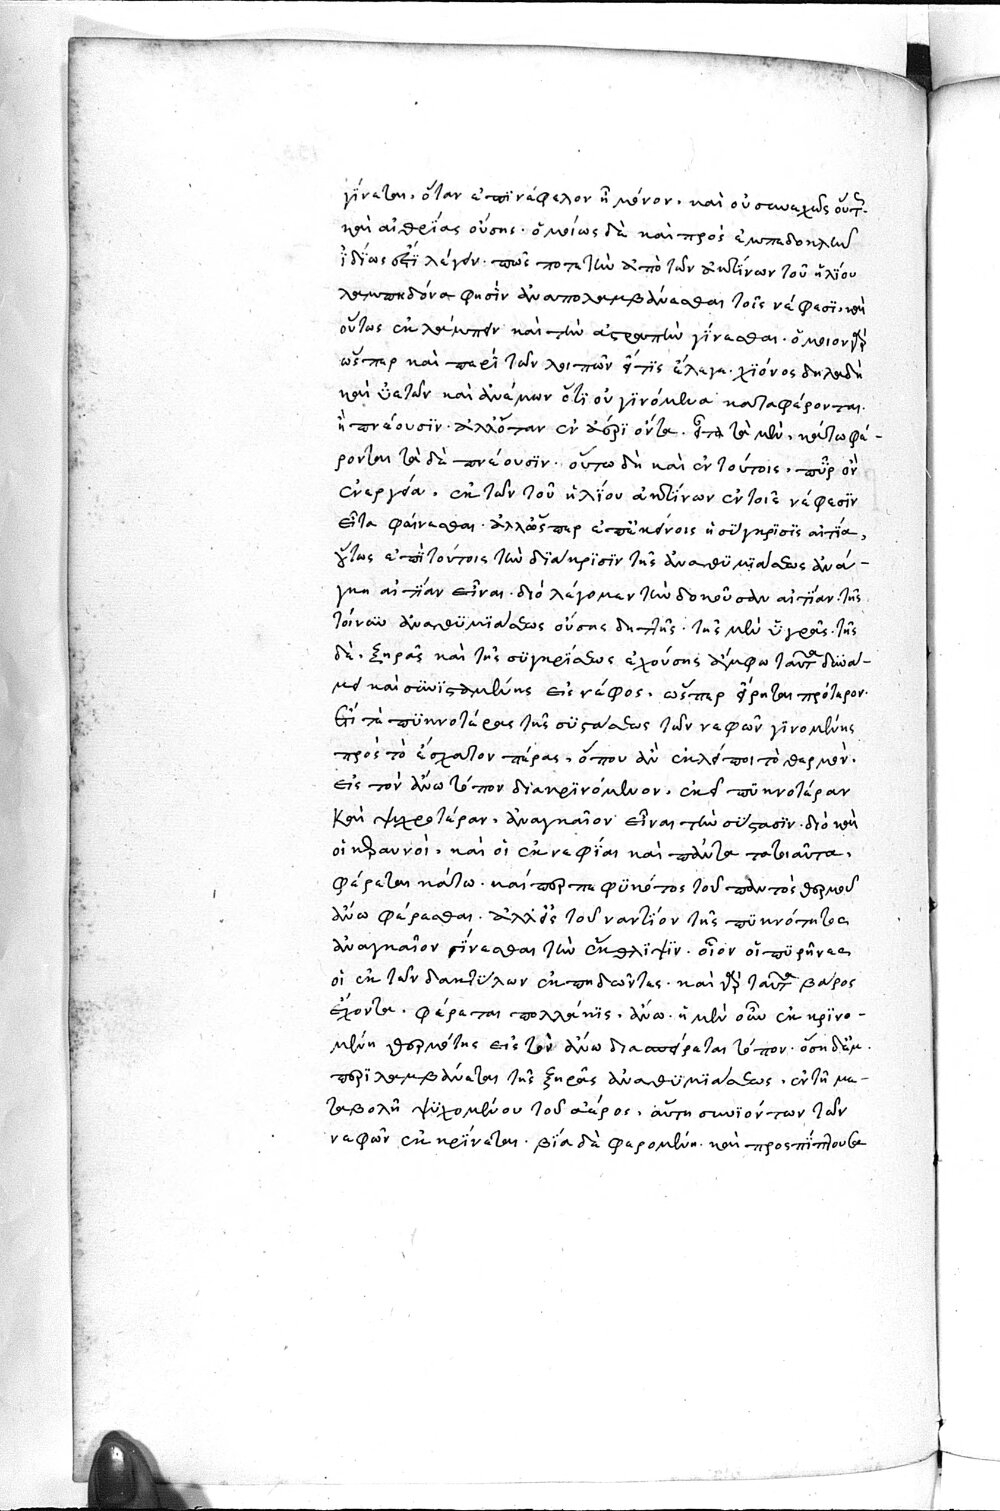 γίνεται, ὅταν ἐπινέφελον ᾖ μόνον. καὶ οὐ συνεχῶς οὕτ
καὶ αἰθρίας οὔσης. ὁμοίως δὲ καὶ πρὸς ἐμπεδοκλέα
ἰδίως λέγειν. πῶς ποτε τὴν ἀπὸ τῶν ἀκτίνων τοῦ ἡλίου
λαμπηδόνα φησὶν ἀναπολαμβάνεσθαι τοῖς νέφεσι, καὶ
οὕτως ἐκλάμπειν καὶ τὴν ἀστραπὴν γίνεσθαι. ὅμοιον γὰρ
ὥσπερ καὶ περὶ τῶν λοιπῶν εἴ τις ἔλεγε. χιόνος δηλαδὴ
καὶ ὑετῶν καὶ ἀνέμων ὅτι οὐ γινόμενα καταφέρονται.
ἢ πνέουσιν. ἀλλ' ὅταν ἐν ἀέρι ὄντα. εἶτα τὰ μὲν, κάτω φέ-
ρονται τὰ δὲ πνέουσιν. οὕτω δὴ καὶ ἐν τούτοις, πῦρ ὂν
ἐνεργείᾳ, ἐκ τῶν τοῦ ἡλίου ἀκτίνων ἐν τοῖς νέφεσιν
εἶτα φαίνεσθαι. ἀλλ' ὥσπερ ἐπ' ἐκείνοις ἡ σύγκρισις αἰτία,
οὕτως ἐπὶ τούτοις τὴν διάκρισιν τῆς ἀναθυμιάσεως ἀνά-
γκη αἰτίαν εἶναι. διὸ λέγομεν τὴν δοκοῦσαν αἰτίαν. τῆς
τοίνυν ἀναθυμιάσεως οὔσης διττῆς. τῆς μὲν ὑγρᾶς. τῆς
δὲ, ξηρᾶς καὶ τῆς συγκρίσεως ἐχούσης ἄμφω ταῦτα δυνά-
μει καὶ συνισταμένης εἰς νέφος, ὥσπερ εἴρηται πρότερον.
ἔτι τὲ πυκνοτέρας τῆς συστάσεως τῶν νεφῶν γινομένης
πρὸς τὸ ἔσχατον πέρας, ὅπου ἂν ἐκλείποι τὸ θερμὸν.
εἰς τὸν ἄνω τόπον διακρινόμενον, ἐκεῖ πυκνοτέραν
καὶ ψυχροτέραν, ἀναγκαῖον εἶναι τὴν σύστασιν. διὸ καὶ
οἱ κεραυνοὶ, καὶ οἱ ἐκνεφίαι καὶ πάντα τοιαῦτα,
φέρεται κάτω. καίπερ πεφυκότος τοῦ παντὸς θερμοῦ
ἄνω φέρεσθαι. ἀλλ' εἰς τοὐναντίον τῆς πυκνότητος
ἀναγκαῖον γίνεσθαι τὴν ἔκθλιψιν. οἷον οἱ πυρῆνες
οἱ ἐκ τῶν δακτύλων ἐκπηδῶντες. καὶ γὰρ ταῦτα βάρος
ἔχοντα, φέρεται πολλάκις, ἄνω. ἡ μὲν οὖν ἐκκρινο-
μένη θερμότης εἰς τὸν ἄνω διασπείρεται τόπον. ὅση δ' ἐμ
περιλαμβάνεται τῆς ξηρᾶς ἀναθυμιάσεως, ἐν τῇ με-
ταβολῇ ψυχομένου τοῦ ἀέρος, αὕτη συνιόντων τῶν
νεφῶν ἐκκρίνεται. βίᾳ δὲ φερομένη. καὶ προσπίπτουσα